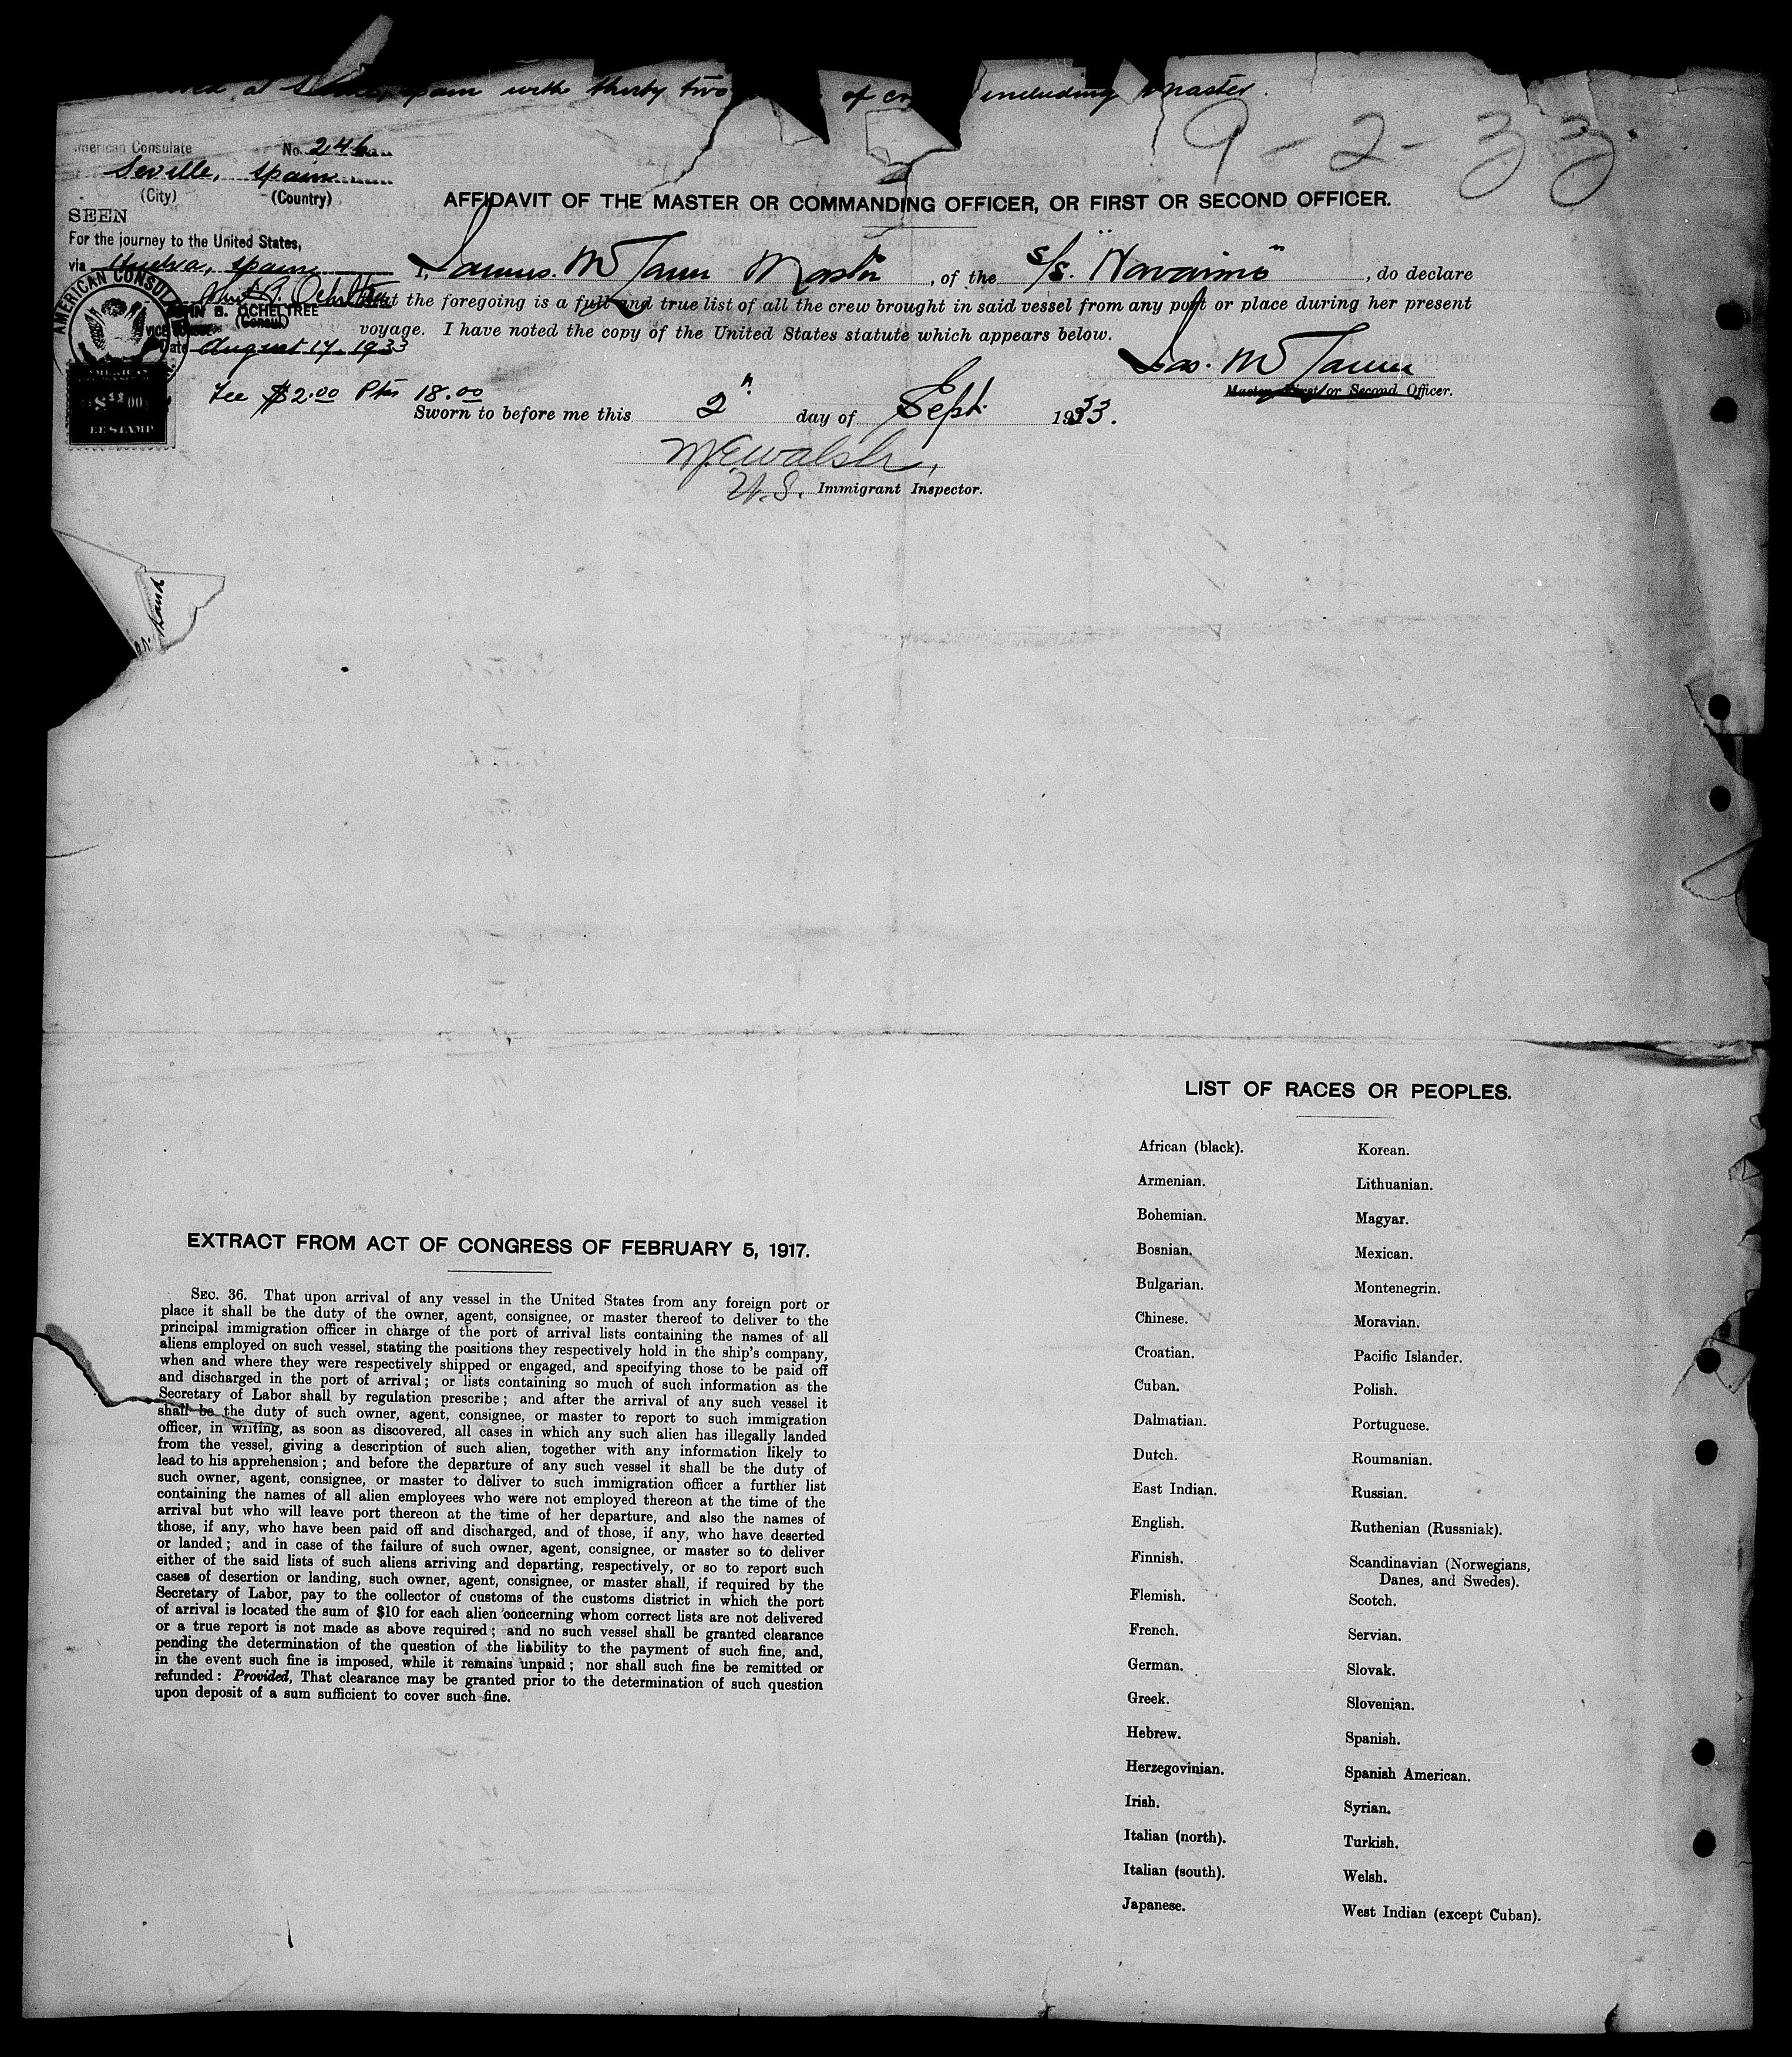 at spain with thirty two of including master.
9-2-33
American Consulate No. 246
Seville, Spain
(City) (Country)
SEEN
For the journey to the United States,
via Huelva, Spain
AMERICAN CONSUL
JOHN B. OCHELTREE
VICE (Consul)
Date August 17, 1933
Fee $2.00 Ptas 18.00
AFFIDAVIT OF THE MASTER OR COMMANDING OFFICER, OR FIRST OR SECOND OFFICER.
I, Master, of the S/S. "Navarino", do declare
that the foregoing is a full and true list of all the crew brought in said vessel from any port or place during her present
voyage. I have noted the copy of the United States statute which appears below.
Jas.
Master, First or Second Officer.
Sworn to before me this 2" day of Sept. 1933.
M.E. Walsh,
U.S. Immigrant Inspector.
LIST OF RACES OR PEOPLES.
African (black).
Armenian.
Bohemian.
Bosnian.
Bulgarian.
Chinese.
Croatian.
Cuban.
Dalmatian.
Dutch.
East Indian.
English.
Finnish.
Flemish.
French.
German.
Greek.
Hebrew.
Herzegovinian.
Irish.
Italian (north).
Italian (south).
Japanese.
Korean.
Lithuanian.
Magyar.
Mexican.
Montenegrin.
Moravian.
Pacific Islander.
Polish.
Portuguese.
Roumanian.
Russian.
Ruthenian (Russniak).
Scandinavian (Norwegians,
Danes, and Swedes).
Scotch.
Servian.
Slovak.
Slovenian.
Spanish.
Spanish American.
Syrian.
Turkish.
Welsh.
West Indian (except Cuban).
EXTRACT FROM ACT OF CONGRESS OF FEBRUARY 5, 1917.
SEC. 36. That upon arrival of any vessel in the United States from any foreign port or
place it shall be the duty of the owner, agent, consignee, or master thereof to deliver to the
principal immigration officer in charge of the port of arrival lists containing the names of all
aliens employed on such vessel, stating the positions they respectively hold in the ship's company,
when and where they were respectively shipped or engaged, and specifying those to be paid off
and discharged in the port of arrival; or lists containing so much of such information as the
Secretary of Labor shall by regulation prescribe; and after the arrival of any such vessel it
shall be the duty of such owner, agent, consignee, or master to report to such immigration
officer, in writing, as soon as discovered, all cases in which any such alien has illegally landed
from the vessel, giving a description of such alien, together with any information likely to
lead to his apprehension; and before the departure of any such vessel it shall be the duty of
such owner, agent, consignee, or master to deliver to such immigration officer a further list
containing the names of all alien employees who were not employed thereon at the time of the
arrival but who will leave port thereon at the time of her departure, and also the names of
those, if any, who have been paid off and discharged, and of those, if any, who have deserted
or landed; and in case of the failure of such owner, agent, consignee, or master so to deliver
either of the said lists of such aliens arriving and departing, respectively, or so to report such
cases of desertion or landing, such owner, agent, consignee, or master shall, if required by the
Secretary of Labor, pay to the collector of customs of the customs district in which the port
of arrival is located the sum of $10 for each alien concerning whom correct lists are not delivered
or a true report is not made as above required; and no such vessel shall be granted clearance
pending the determination of the question of the liability to the payment of such fine, and,
in the event such fine is imposed, while it remains unpaid; nor shall such fine be remitted or
refunded: Provided, That clearance may be granted prior to the determination of such question
upon deposit of a sum sufficient to cover such fine.